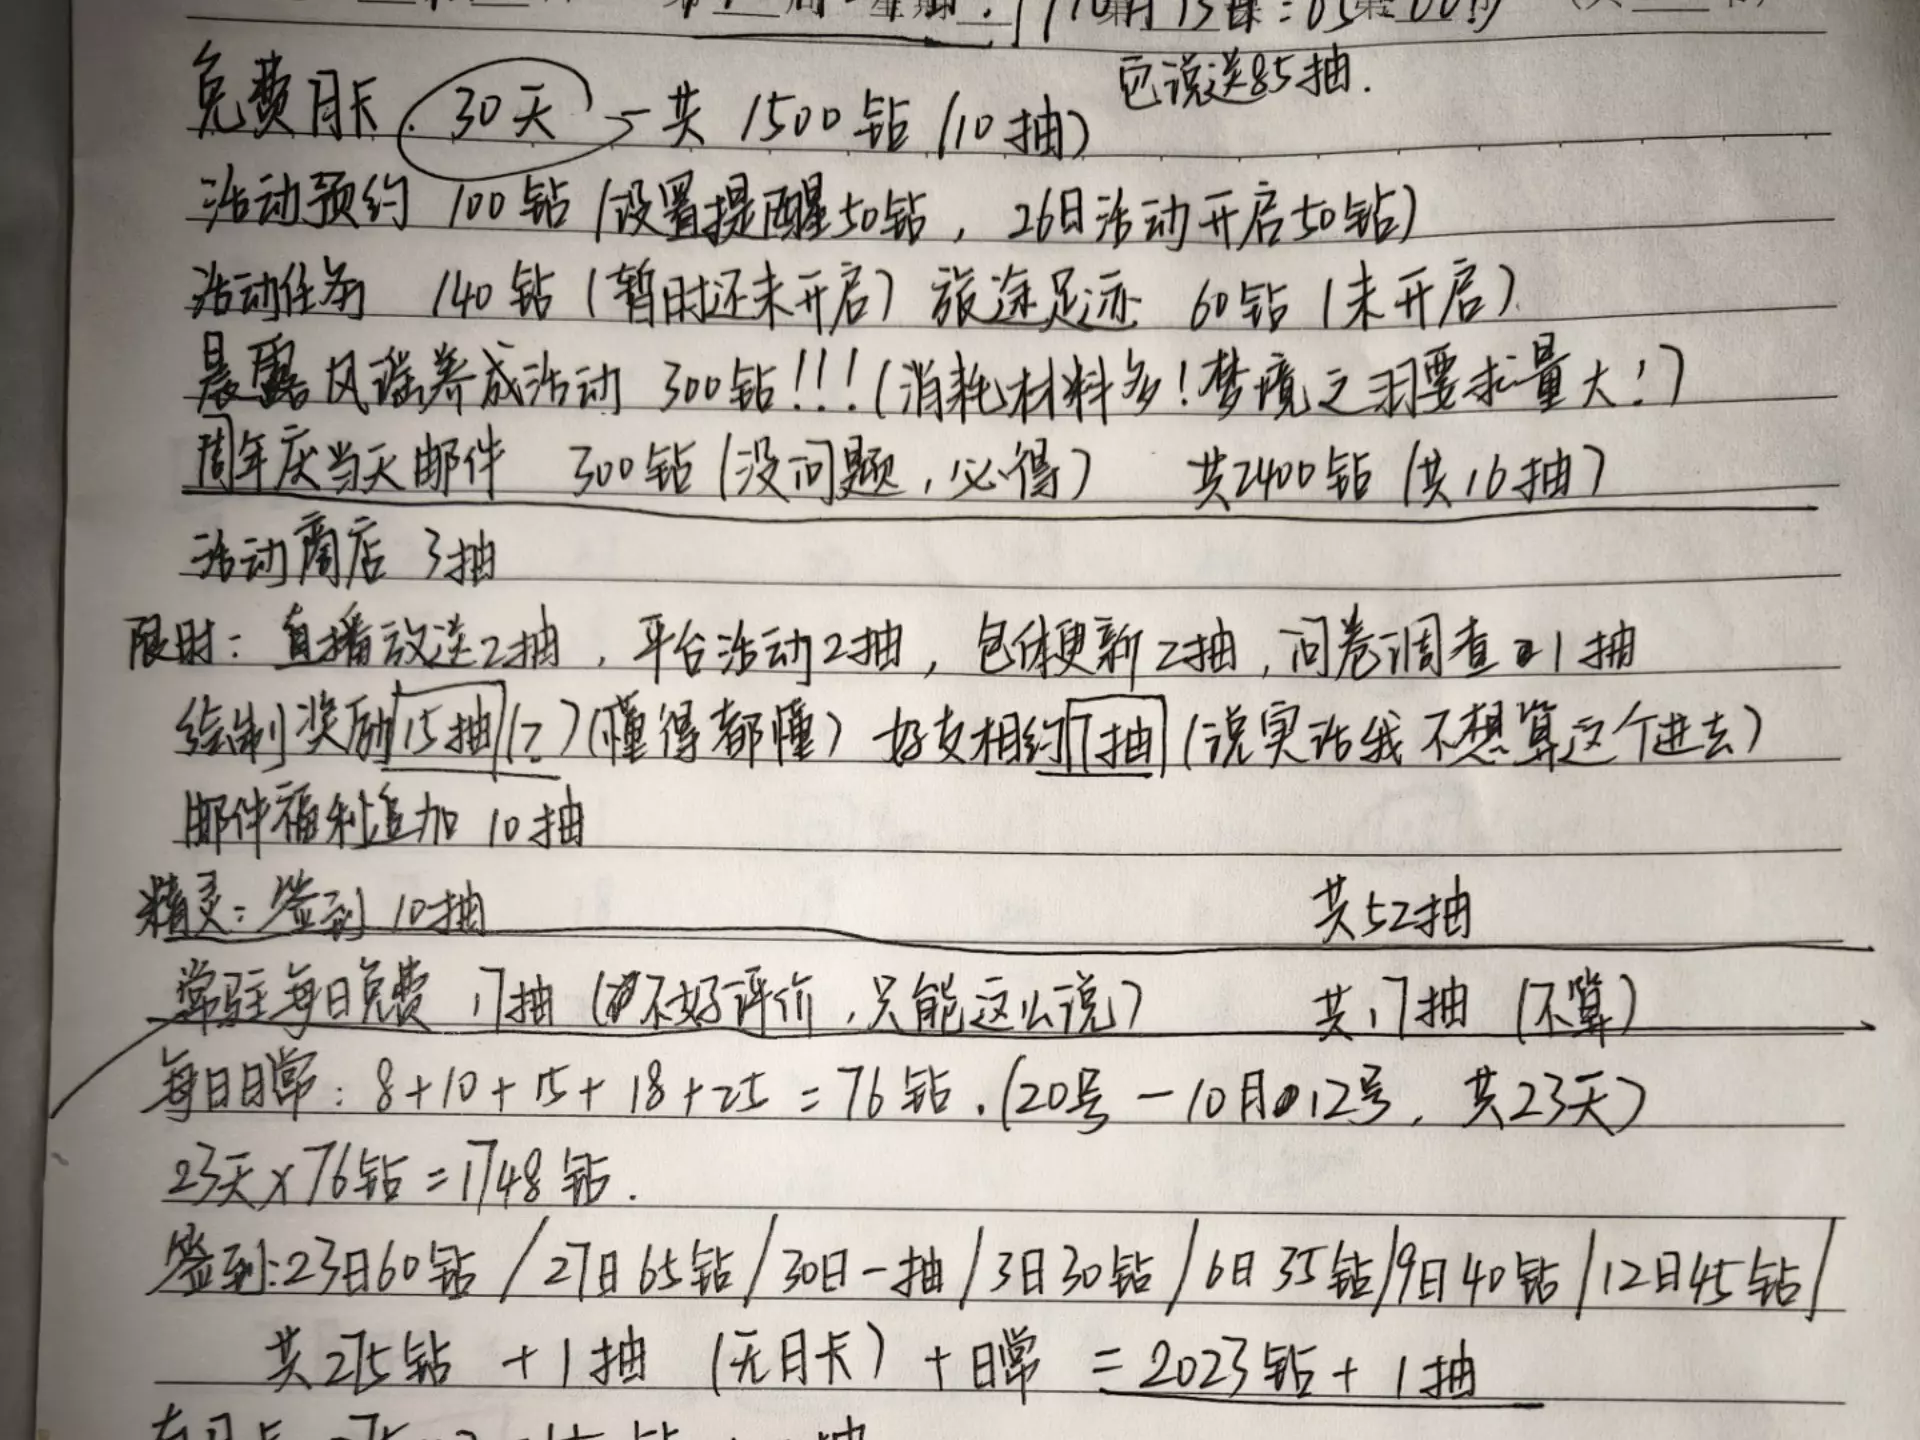 它说送85抽.
免费月卡 30天 → 共 1500钻 (10抽)
活动预约 100钻 (设置提醒50钻, 26日活动开启50钻)
活动任务 140钻 (暂时还未开启) 旅途足迹 60钻 (未开启)
晨露风谣养成活动 300钻!!! (消耗材料多! 梦境之羽要求量大!)
周年庆当天邮件 300钻 (没问题, 必得) 共2400钻 (共16抽)
活动商店 3抽
限时: 直播放送2抽, 平台活动2抽, 包体更新2抽, 问卷调查 1抽
绘制奖励15抽(?) (懂得都懂) 好友相约7抽 (说实话我不想算这个进去)
邮件福利追加 10抽
精灵: 签到 10抽 共52抽
常驻每日免费 17抽 (不好评价, 只能这么说) 共17抽 (不算)
每日日常: 8+10+15+18+25=76钻. (20号-10月12号, 共23天)
23天×76钻=1748钻.
签到: 23日60钻/27日65钻/30日一抽/3日30钻/6日35钻/9日40钻/12日45钻/
共275钻 + 1抽 (无月卡) + 日常 = 2023钻 + 1抽